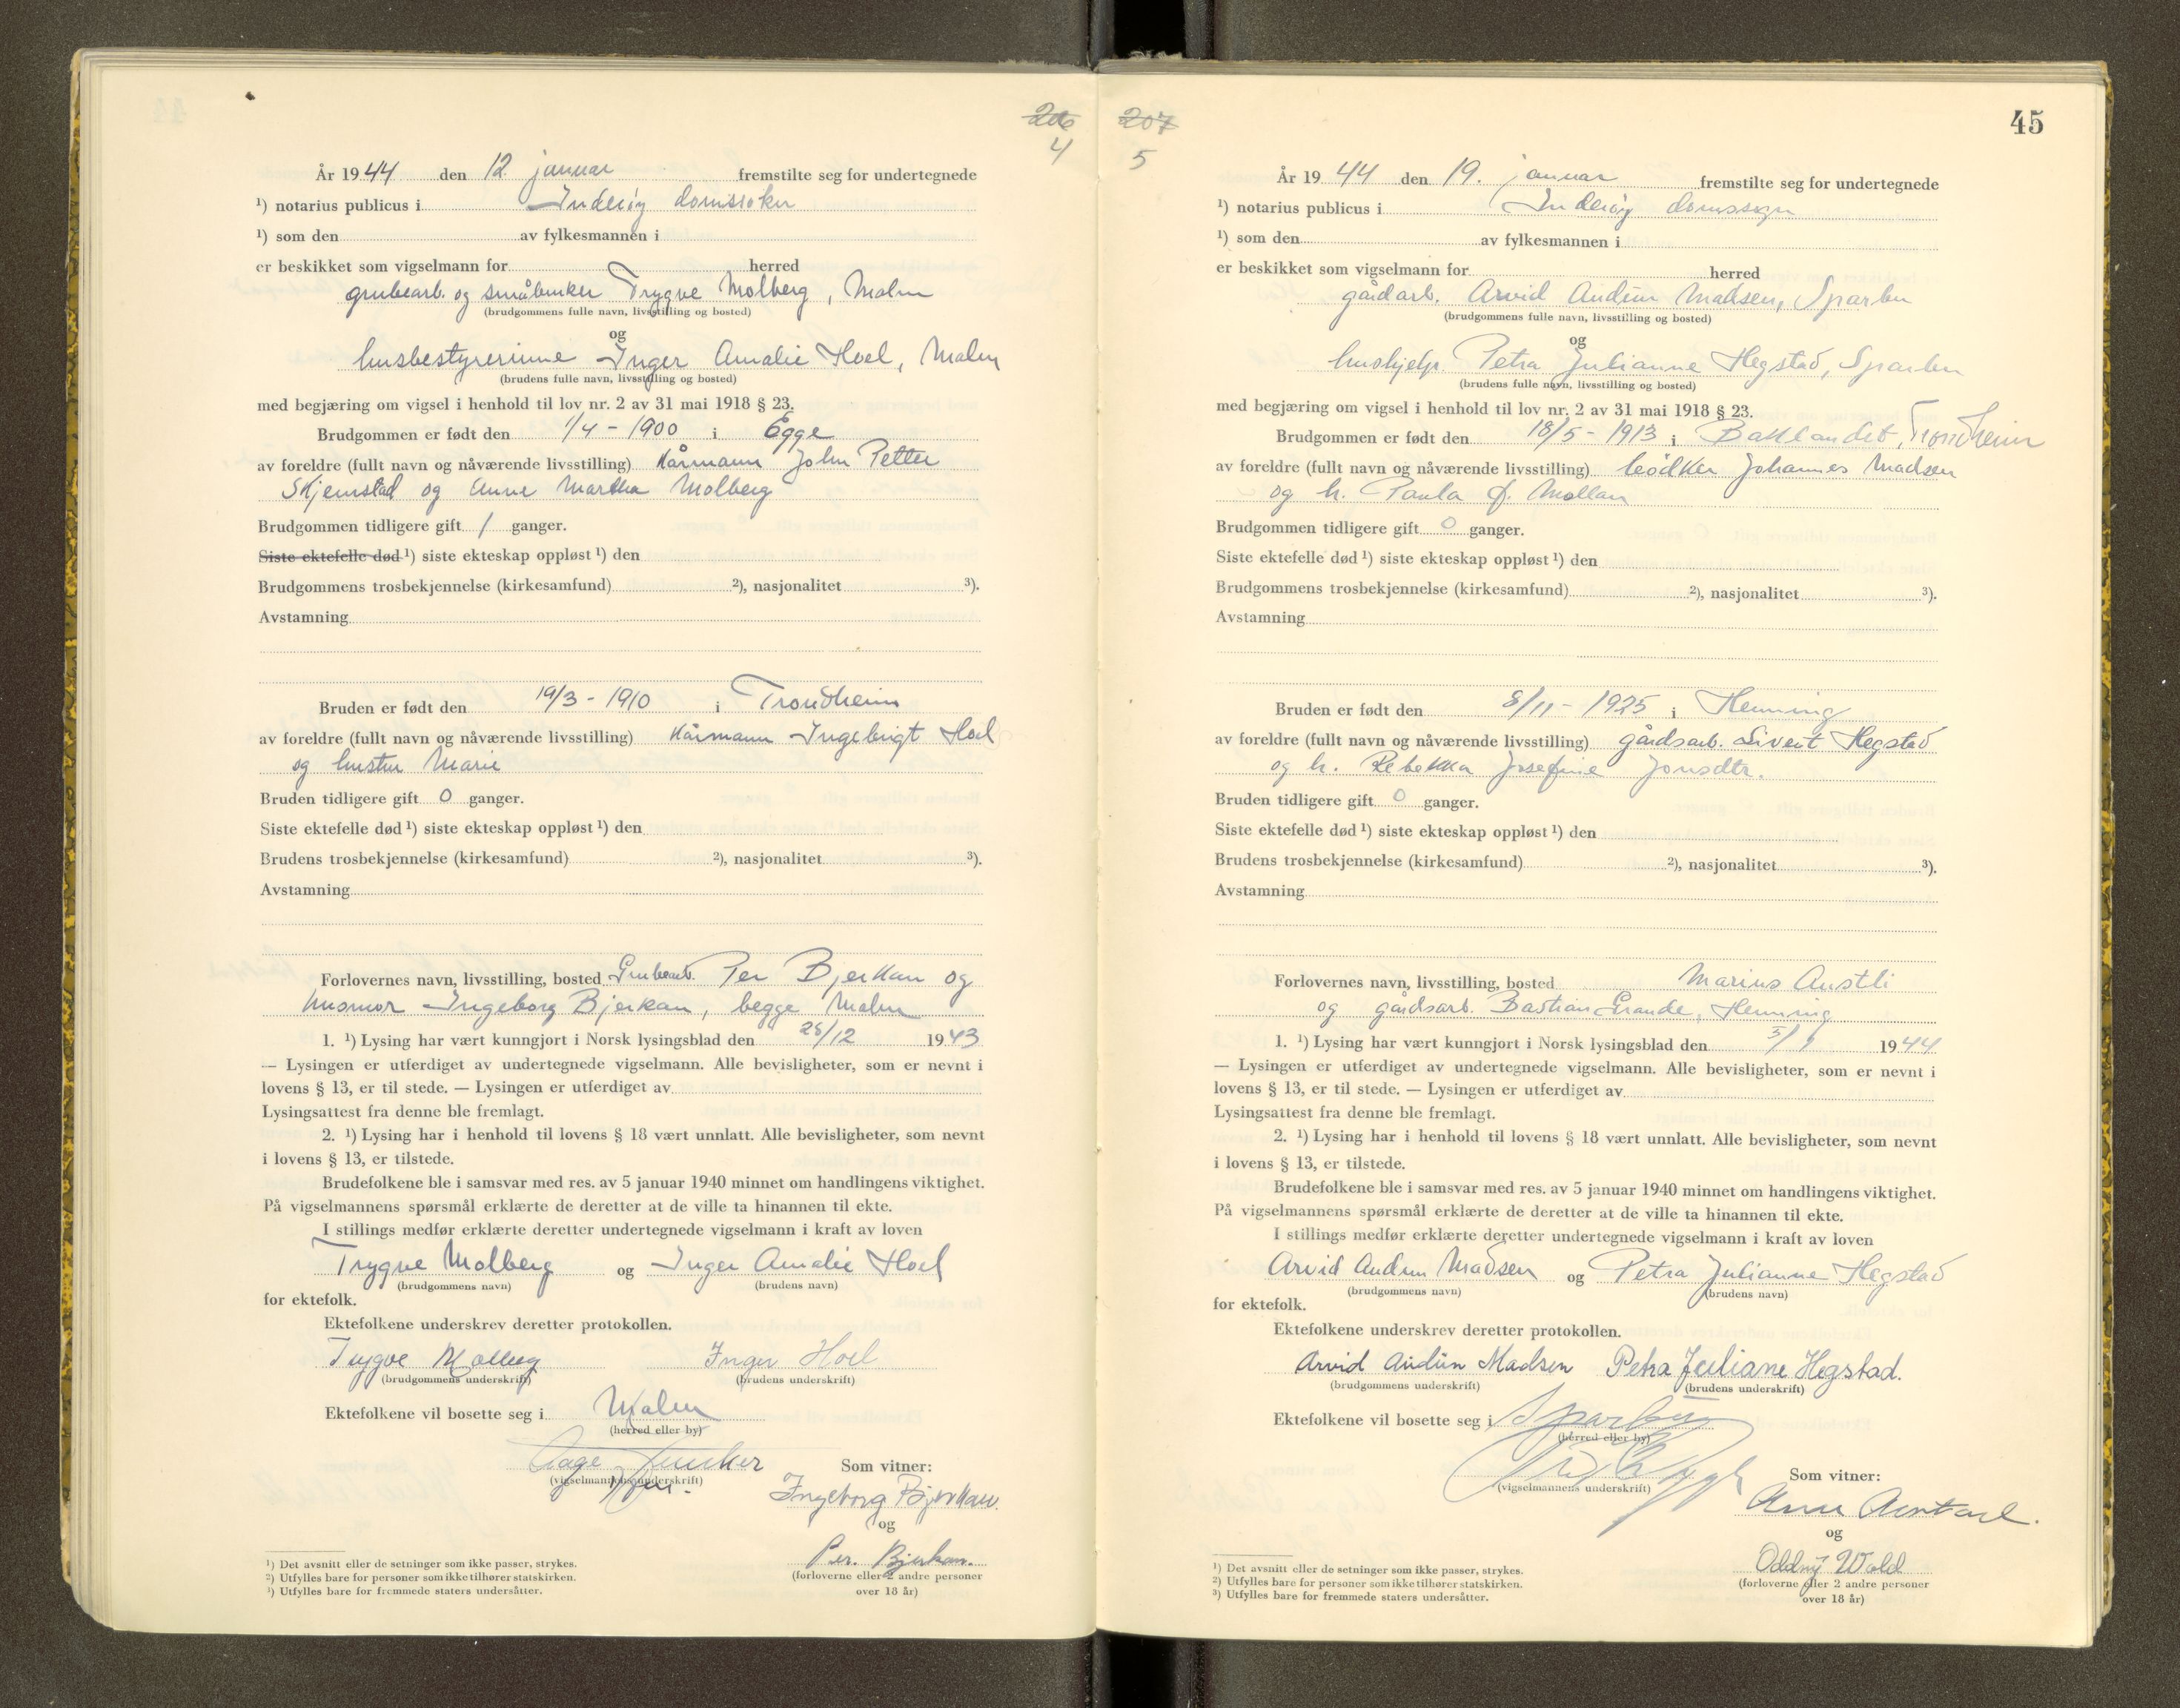 206
4
År 1944 den 12. januar fremstilte seg for undertegnede
¹) notarius publicus i Inderøy domssoken
¹) som den av fylkesmannen i
er beskikket som vigselmann for herred
grubearb. og småbruker Trygve Molberg, Malm
(brudgommens fulle navn, livsstilling og bosted)
og
husbestyrerinne Inger Amalie Hoel, Malm
(brudens fulle navn, livsstilling og bosted)
med begjæring om vigsel i henhold til lov nr. 2 av 31 mai 1918 § 23.
Brudgommen er født den 1/4 - 1900 i Egge
av foreldre (fullt navn og nåværende livsstilling) Kårmann John Petter
Skjemstad og Anne Martha Molberg
Brudgommen tidligere gift 1 ganger.
Siste ektefelle død ¹) siste ekteskap oppløst ¹) den
Brudgommens trosbekjennelse (kirkesamfund) ²), nasjonalitet ³).
Avstamning
Bruden er født den 19/3 - 1910 i Trondheim
av foreldre (fullt navn og nåværende livsstilling) Kårmann Ingebrigt Hoel
og hustru Marie
Bruden tidligere gift 0 ganger.
Siste ektefelle død ¹) siste ekteskap oppløst ¹) den
Brudens trosbekjennelse (kirkesamfund) ²), nasjonalitet ³).
Avstamning
Forlovernes navn, livsstilling, bosted Grubearb. Per Bjerkan og
husmor Ingeborg Bjerkan, begge Malm
1. ¹) Lysing har vært kunngjort i Norsk lysingsblad den 28/12 1943
— Lysingen er utferdiget av undertegnede vigselmann. Alle bevisligheter, som er nevnt i
lovens § 13, er til stede. — Lysingen er utferdiget av
Lysingsattest fra denne ble fremlagt.
2. ¹) Lysing har i henhold til lovens § 18 vært unnlatt. Alle bevisligheter, som nevnt
i lovens § 13, er tilstede.
Brudefolkene ble i samsvar med res. av 5 januar 1940 minnet om handlingens viktighet.
På vigselmannens spørsmål erklærte de deretter at de ville ta hinannen til ekte.
I stillings medfør erklærte deretter undertegnede vigselmann i kraft av loven
Trygve Molberg og Inger Amalie Hoel
(brudgommens navn) (brudens navn)
for ektefolk.
Ektefolkene underskrev deretter protokollen.
Trygve Molberg Inger Hoel
(brudgommens underskrift) (brudens underskrift)
Ektefolkene vil bosette seg i Malm
(herred eller by)
Aage Juncker
(vigselmannens underskrift)
Som vitner:
Ingeborg Bjerkan.
og
Per. Bjerkan.
(forloverne eller 2 andre personer
over 18 år)
¹) Det avsnitt eller de setninger som ikke passer, strykes.
²) Utfylles bare for personer som ikke tilhører statskirken.
¹) Utfylles bare for fremmede staters undersåtter.
207
5
45
År 1944 den 19. januar fremstilte seg for undertegnede
¹) notarius publicus i Inderøy domssogn
¹) som den av fylkesmannen i
er beskikket som vigselmann for herred
gårdarb. Arvid Audun Madsen, Sparbu
(brudgommens fulle navn, livsstilling og bosted)
og
hushjelp. Petra Julianne Hegstad, Sparbu
(brudens fulle navn, livsstilling og bosted)
med begjæring om vigsel i henhold til lov nr. 2 av 31 mai 1918 § 23.
Brudgommen er født den 18/5 - 1913 i Baklandet, Trondheim
av foreldre (fullt navn og nåværende livsstilling) bødker Johannes Madsen
og h. Paula f. Mollan
Brudgommen tidligere gift 0 ganger.
Siste ektefelle død ¹) siste ekteskap oppløst ¹) den
Brudgommens trosbekjennelse (kirkesamfund) ²), nasjonalitet ³).
Avstamning
Bruden er født den 8/11 - 1925 i Henning
av foreldre (fullt navn og nåværende livsstilling) gårdsarb. Sivert Hegstad
og h. Rebekka Josefine Jonsdtr.
Bruden tidligere gift 0 ganger.
Siste ektefelle død ¹) siste ekteskap oppløst ¹) den
Brudens trosbekjennelse (kirkesamfund) ²), nasjonalitet ³).
Avstamning
Forlovernes navn, livsstilling, bosted Marius Austli
og gårdsarb. Bastian Grande, Henning
1. ¹) Lysing har vært kunngjort i Norsk lysingsblad den 5/1 1944
— Lysingen er utferdiget av undertegnede vigselmann. Alle bevisligheter, som er nevnt i
lovens § 13, er til stede. — Lysingen er utferdiget av
Lysingsattest fra denne ble fremlagt.
2. ¹) Lysing har i henhold til lovens § 18 vært unnlatt. Alle bevisligheter, som nevnt
i lovens § 13, er tilstede.
Brudefolkene ble i samsvar med res. av 5 januar 1940 minnet om handlingens viktighet.
På vigselmannens spørsmål erklærte de deretter at de ville ta hinannen til ekte.
I stillings medfør erklærte deretter undertegnede vigselmann i kraft av loven
Arvid Audun Madsen og Petra Julianne Hegstad
(brudgommens navn) (brudens navn)
for ektefolk.
Ektefolkene underskrev deretter protokollen.
Arvid Audun Madsen Petra Juliane Hegstad.
(brudgommens underskrift) (brudens underskrift)
Ektefolkene vil bosette seg i Sparbu
(herred eller by)
(vigselmannens underskrift)
Som vitner:
og
Oddny Wold
(forloverne eller 2 andre personer
over 18 år)
¹) Det avsnitt eller de setninger som ikke passer, strykes.
²) Utfylles bare for personer som ikke tilhører statskirken.
³) Utfylles bare for fremmede staters undersåtter.